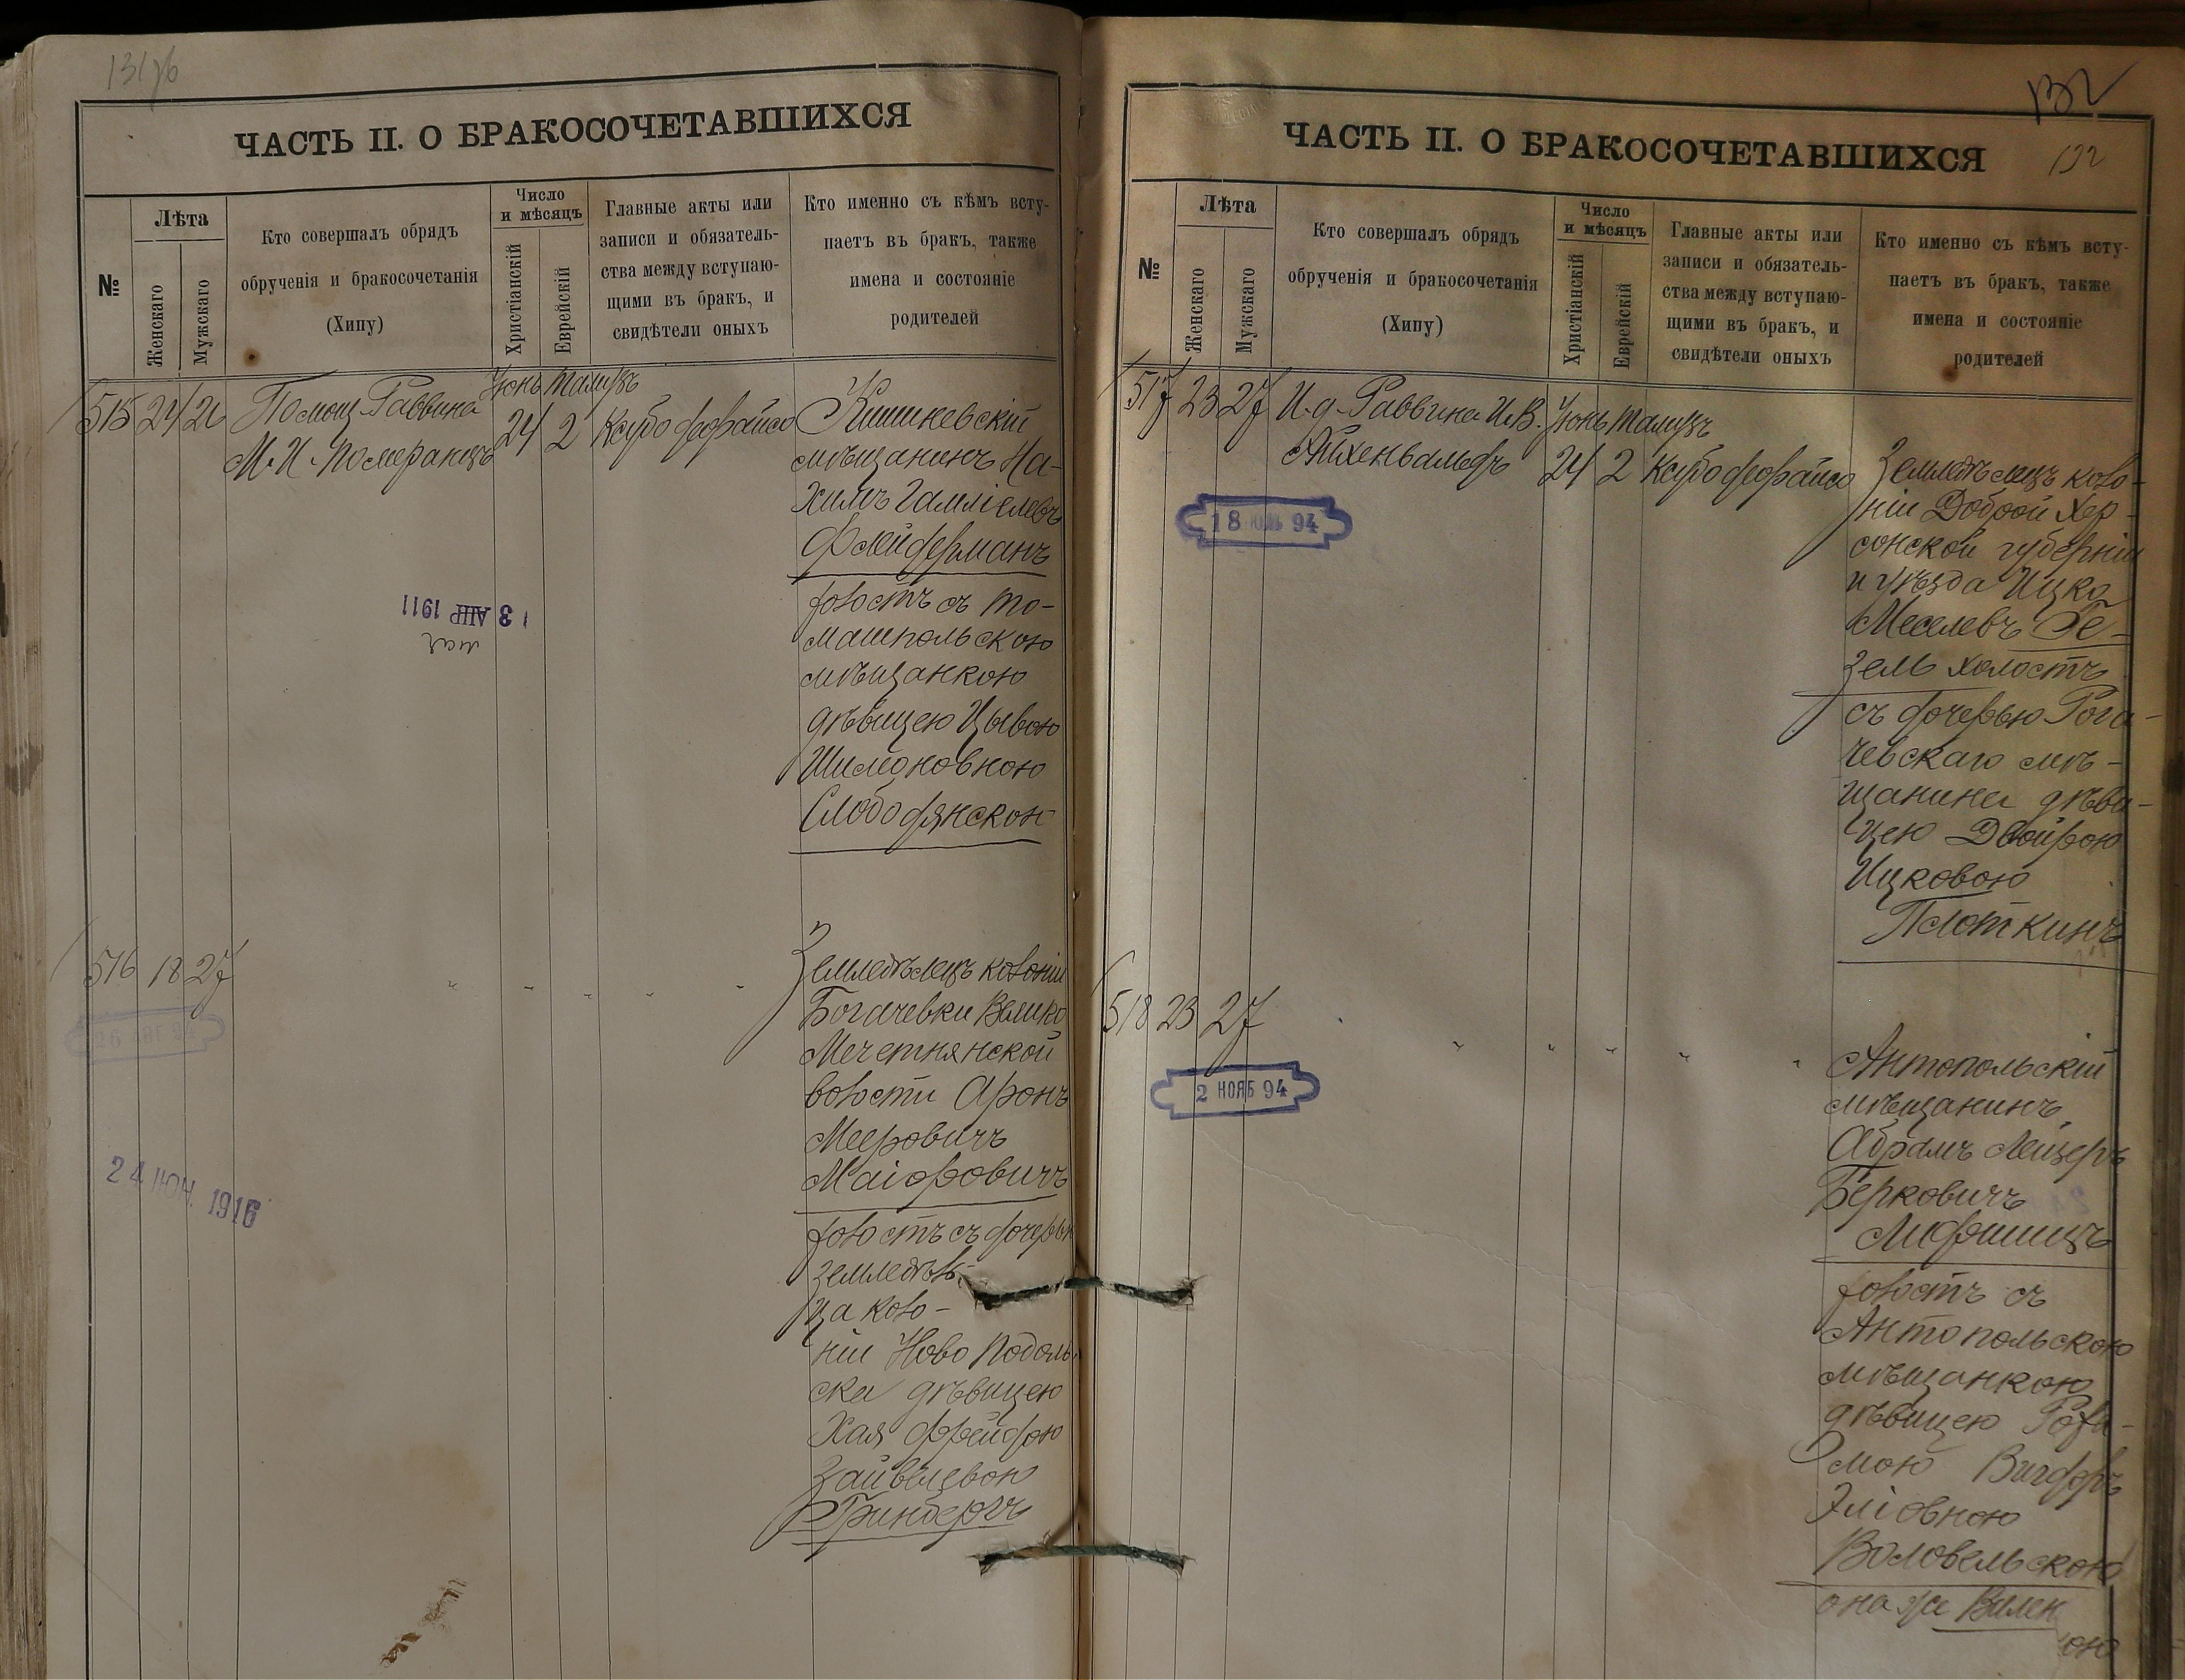 131 об
ЧАСТЬ II. О БРАКОСОЧЕТАВШИХСЯ
№
Лѣта
Женскаго
Мужскаго
Кто совершалъ обрядъ
обрученія и бракосочетанія
(Хипу)
Число
и мѣсяцъ
Христіанскій
Еврейскій
Главные акты или
записи и обязатель-
ства между вступаю-
щими въ бракъ, и
свидѣтели оныхъ
Кто именно съ кѣмъ всту-
паетъ въ бракъ, также
имена и состояніе
родителей
515 24 26
Помощ. Раввина
М. И. Померанцъ
Іюнь Тамузъ
24 2
Ксубо деорайсо
Кишиневскій
мѣщанинъ На-
химъ Гамшіелевъ
Флейдерманъ
холостъ съ То-
машпольскою
мѣщанкою
дѣвицею Цывою
Шимоновною
Слободянскою
13 АПР 1911
516 18 27
" " " " "
Земледѣлецъ колоніи
Богачевки Велико
Мечетнянской
волости Аронъ
Мееровичъ
Маіоровичъ
холостъ съ дочерью
земледѣль-
ца коло-
ніи Ново Подоль-
ска дѣвицею
Хая Фрейдою
Зайвелевою
Гринбергъ
26 АВГ 94
24 ИЮН. 1916
132
132
ЧАСТЬ II. О БРАКОСОЧЕТАВШИХСЯ
№
Лѣта
Женскаго
Мужскаго
Кто совершалъ обрядъ
обрученія и бракосочетанія
(Хипу)
Число
и мѣсяцъ
Христіанскій
Еврейскій
Главные акты или
записи и обязатель-
ства между вступаю-
щими въ бракъ, и
свидѣтели оныхъ
Кто именно съ кѣмъ всту-
паетъ въ бракъ, также
имена и состояніе
родителей
517 23 27
И. д. Раввина И. В.
Айхенвальдъ
Іюнь Тамузъ
24 2
Ксубо деорайсо
Земледѣлецъ коло-
ніи Доброй Хер-
сонской губерніи
и уѣзда Ицко
Меселевъ Ге-
зель холостъ
съ дочерью Рога-
чевскаго мѣ-
щанина дѣви-
цею Двойрою
Ицковою
Плоткинъ
18 94
518 23 27
" " " " "
Антопольскій
мѣщанинъ
Абрамъ Лейзеръ
Берковичъ
Лифшицъ
холостъ съ
Антопольскою
мѣщанкою
дѣвицею
мою
Эліовною
Воловельскою
она же Вилен
ою
2 НОЯБ 94